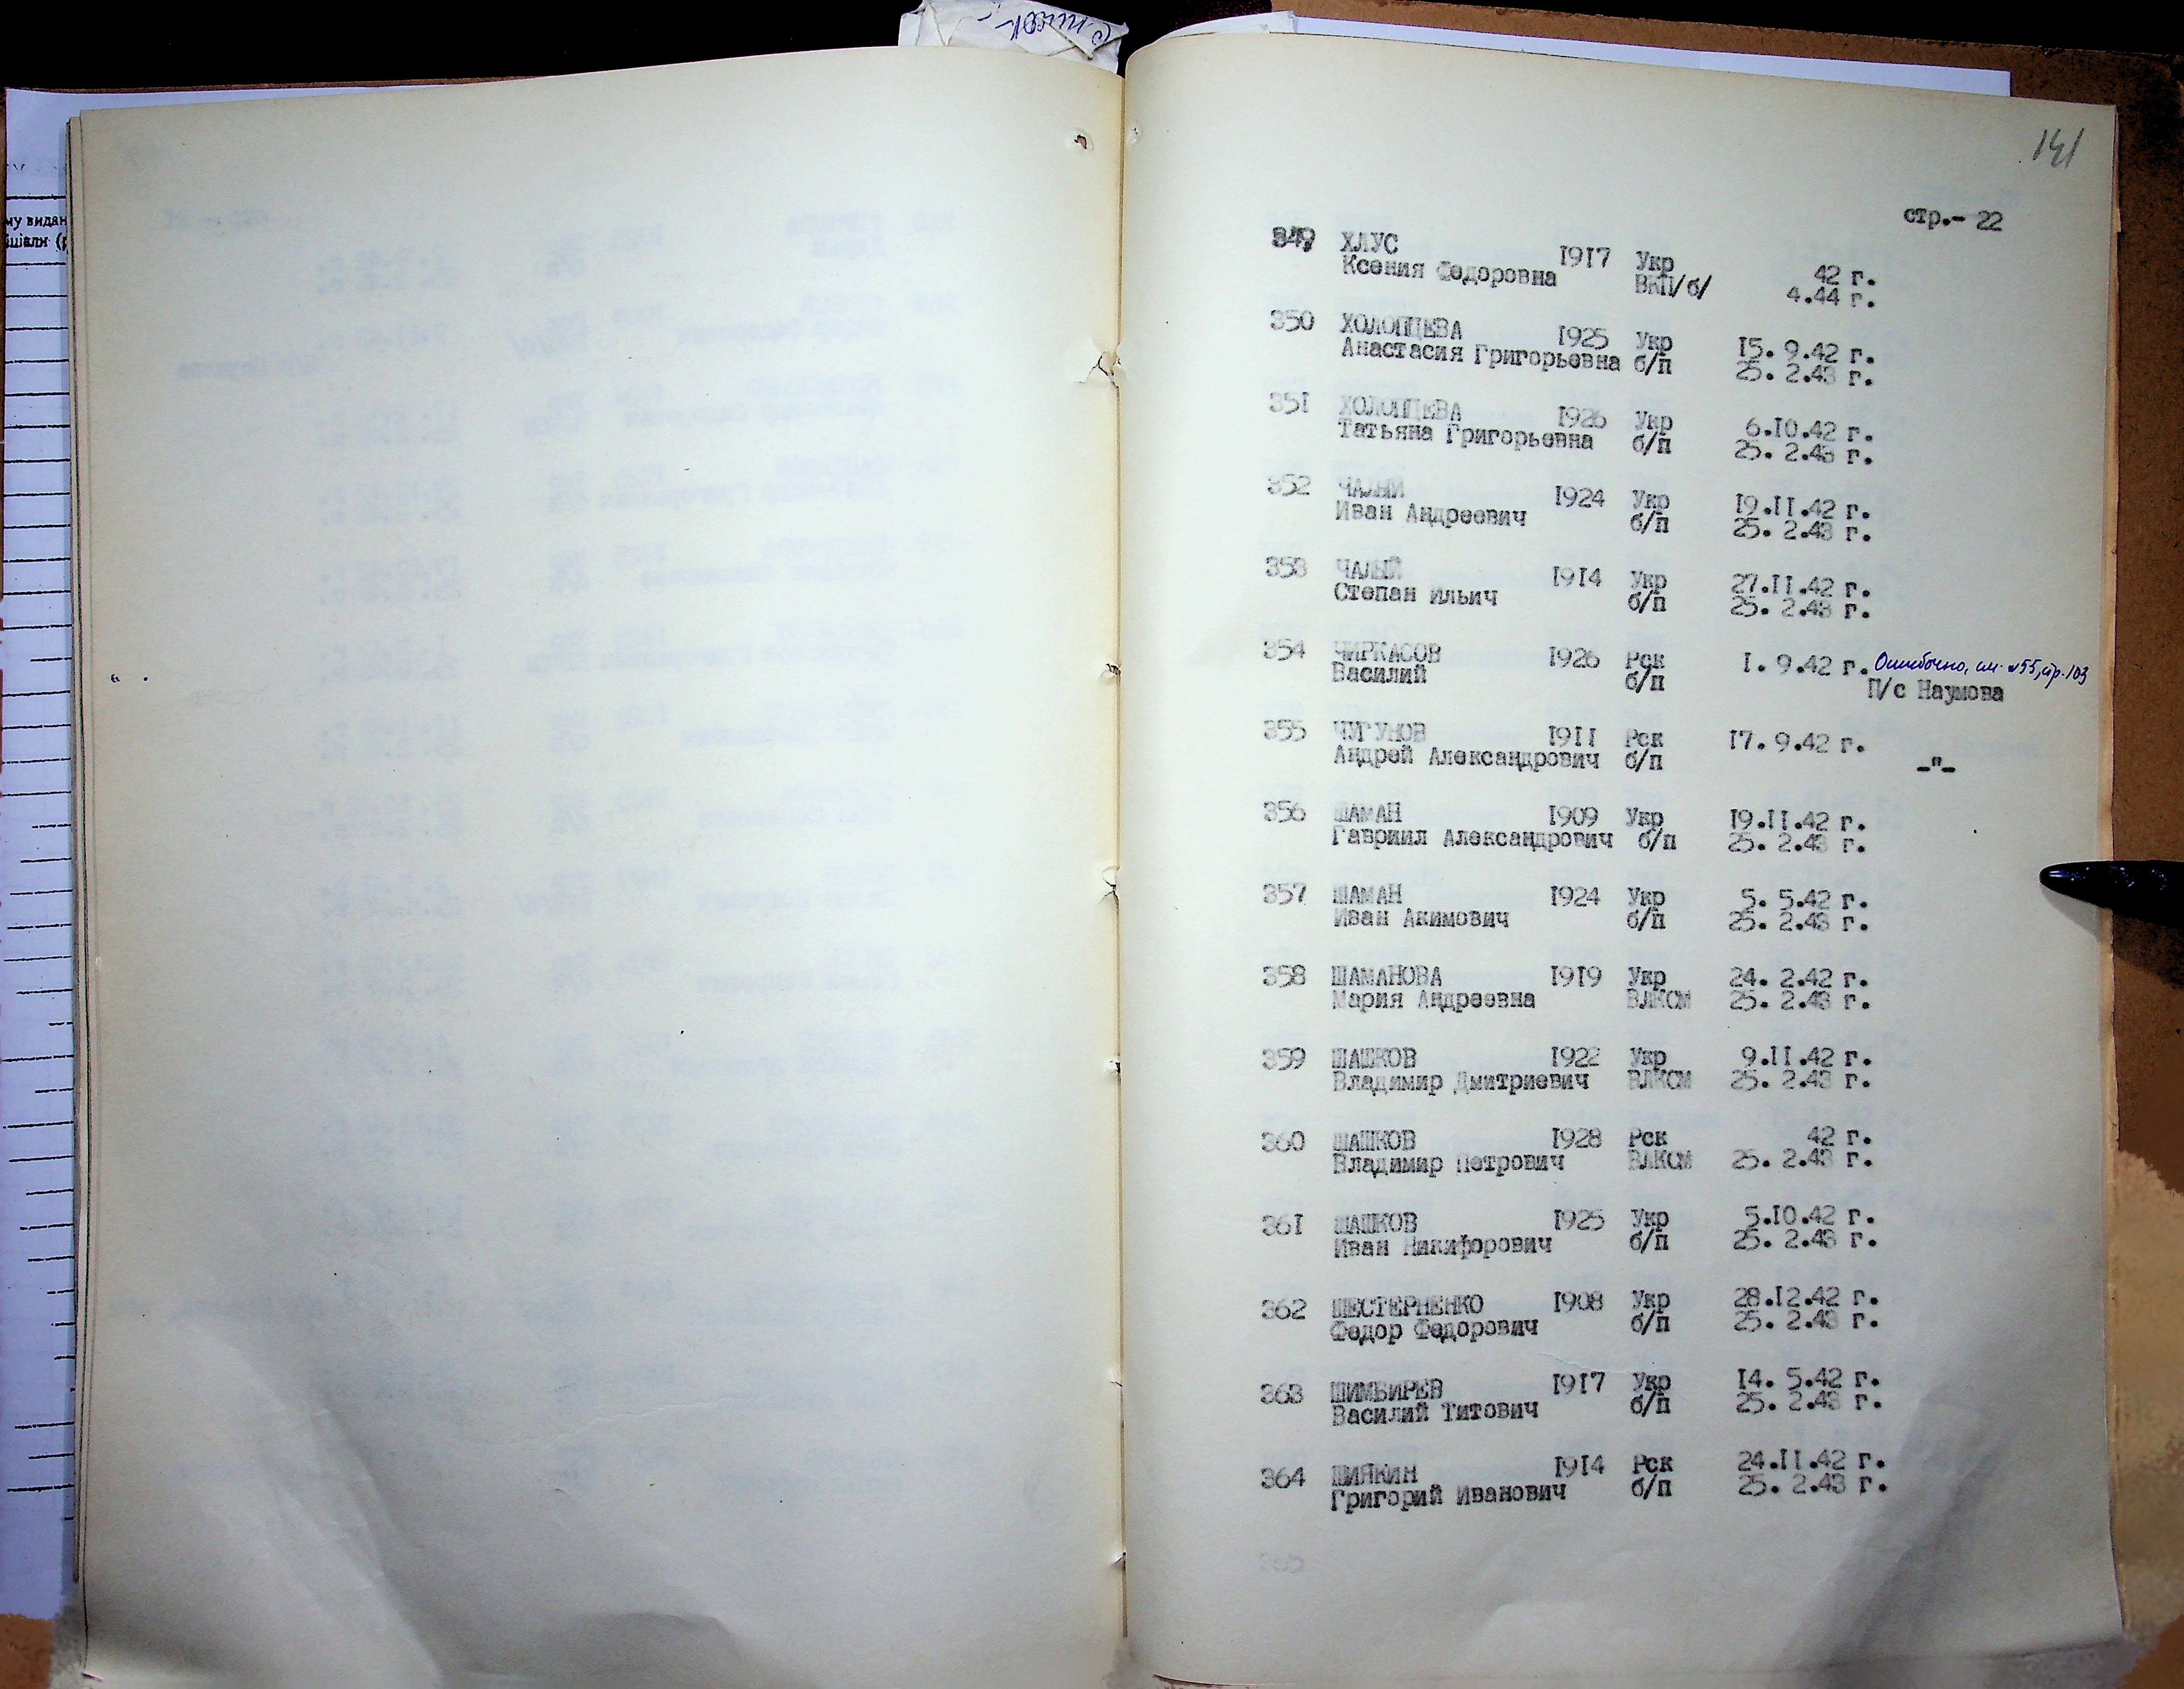 141
стр.- 22
349 ХЛУС 1917 Укр 42 г.
Ксения Федоровна ВКП/б/ 4.44 г.
350 ХОЛОПЦЕВА 1925 Укр 15. 9.42 г.
Анастасия Григорьевна б/п 25. 2.43 г.
351 ХОЛОПЦЕВА 1926 Укр 6.10.42 г.
Татьяна Григорьевна б/п 25. 2.43 г.
352 ЧАЛЫЙ 1924 Укр 19.11.42 г.
Иван Андреевич б/п 25. 2.43 г.
353 ЧАЛЫЙ 1914 Укр 27.11.42 г.
Степан Ильич б/п 25. 2.43 г.
354 ЧИРКАСОВ 1926 Рск 1. 9.42 г. Ошибочно, см. №55, стр. 103
Василий б/п П/с Наумова
355 ЧУГУНОВ 1911 Рск 17. 9.42 г.
Андрей Александрович б/п -"-
356 ШАМАН 1909 Укр 19.11.42 г.
Гавриил Александрович б/п 25. 2.43 г.
357 ШАМАН 1924 Укр 5. 5.42 г.
Иван Акимович б/п 25. 2.43 г.
358 ШАМАНОВА 1919 Укр 24. 2.42 г.
Мария Андреевна ВЛКСМ 25. 2.43 г.
359 ШАШКОВ 1922 Укр 9.11.42 г.
Владимир Дмитриевич ВЛКСМ 25. 2.43 г.
360 ШАШКОВ 1928 Рск 42 г.
Владимир Петрович ВЛКСМ 25. 2.43 г.
361 ШАШКОВ 1925 Укр 5.10.42 г.
Иван Никифорович б/п 25. 2.43 г.
362 ШЕСТЕРНЕНКО 1908 Укр 28.12.42 г.
Федор Федорович б/п 25. 2.43 г.
363 ШИМБИРЕВ 1917 Укр 14. 5.42 г.
Василий Титович б/п 25. 2.43 г.
364 ШИЯКИН 1914 Рск 24.11.42 г.
Григорий Иванович б/п 25. 2.43 г.
365